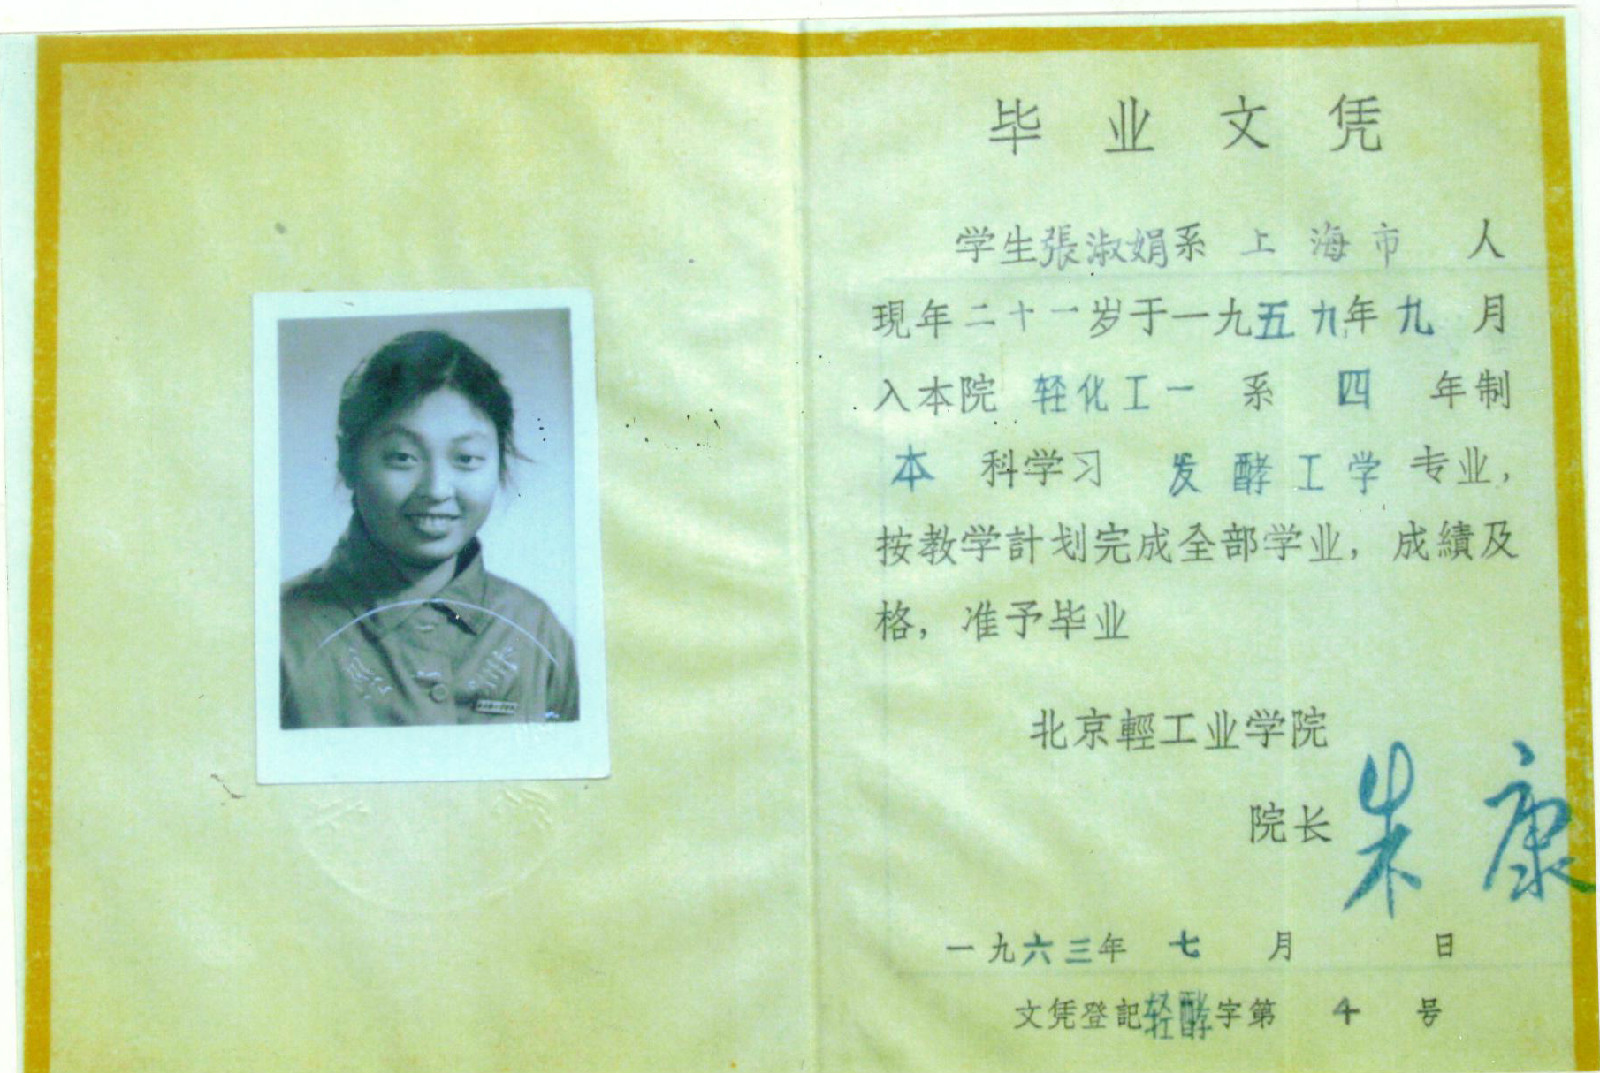 毕业文凭
学生張淑娟系 上海市 人
現年二十一岁于一九五九年九月
入本院 轻化工一 系 四 年制
本 科学习 发酵工学 专业，
按教学計划完成全部学业，成績及
格，准予毕业
北京輕工业学院
院长 朱康
一九六三年 七 月 日
文凭登記轻酵字第 4 号